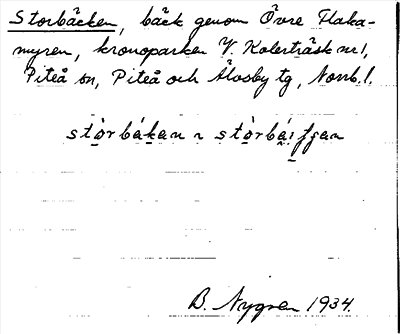 Storbäcken, bäck genom Övre Flaka-
myren, kronoparken V. Kolerträsk nr 1,
Piteå sn, Piteå och Älvsby tg, Norrb. l.
stòrbákan ~ stòrbái
B. Nygren 1934.